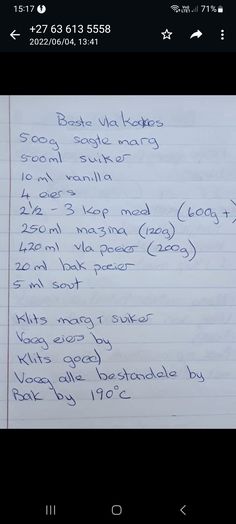 15:17
71%
+27 63 613 5558
2022/06/04, 13:41
Beste Vla Koekies
500g sagte marg
500ml suiker
10 ml vanilla
4 eiers
2 1/2 - 3 kop meel (600g +)
250ml mazina (120g)
420ml vla poeier (200g)
20 ml bak poeier
5 ml sout
Klits marg + suiker
Voeg eiers by
Klits goed
Voeg alle bestandele by
Bak by 190°C